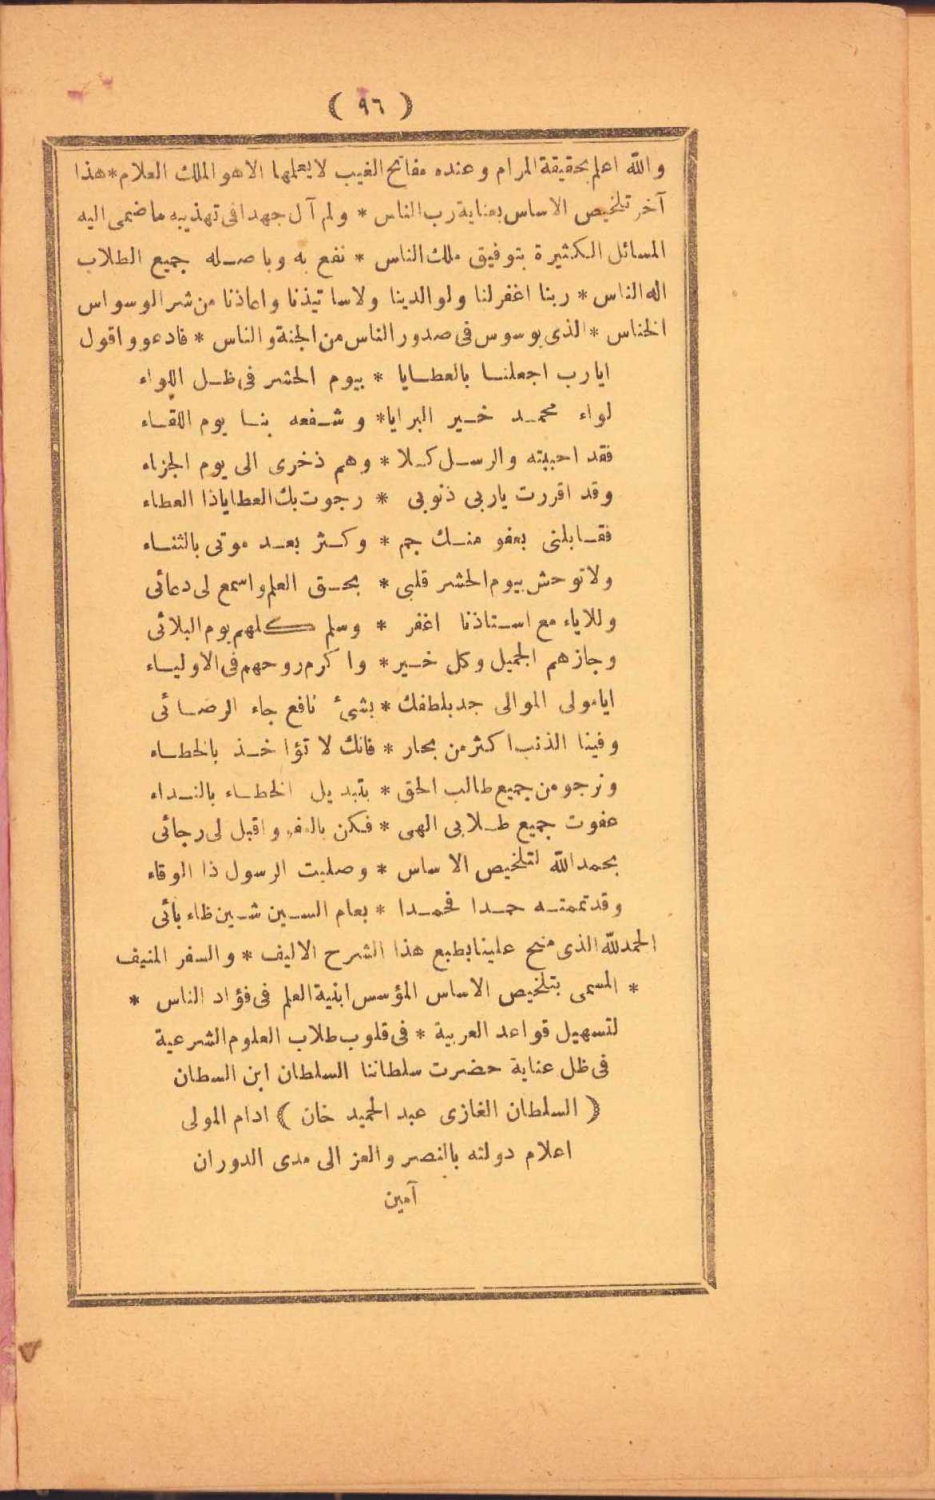 ( ٩٦ )
والله اعلم بحقيقة المرام وعنده مفاتح الغيب لا يعلمها الا هو الملك العلام * هذا
آخر تلخيص الاساس بعناية رب الناس * ولم آل جهدا فى تهذيبه ما ضمى اليه
المسائل الكثيرة بتوفيق ملك الناس * نفع به وباصله جميع الطلاب
اله الناس * ربنا اغفر لنا ولوالدينا ولاساتيذنا واعاذنا من شر الوسواس
الخناس * الذى يوسوس فى صدور الناس من الجنة والناس * فادعو واقول
ايا رب اجعلنا بالعطايا * بيوم الحشر فى ظل اللواء
لواء محمد خير البرايا * وشفعه بنا يوم اللقاء
فقد احببته والرسل كلا * وهم ذخرى الى يوم الجزاء
وقد اقررت ياربى ذنوبى * رجوت بك العطايا ذا العطاء
فقابلنى بعفو منك جم * وكثر بعد موتى بالثناء
ولا توحش بيوم الحشر قلبى * بحق العلم واسمع لى دعائى
وللاباء مع استاذنا اغفر * وسلم كلهم يوم البلائى
وجازهم الجميل وكل خير * واكرم روحهم فى الاولياء
ايا مولى الموالى جد بلطفك * بشئ نافع جاء الرضائى
وفينا الذنب اكثر من بحار * فانك لا تؤاخذ بالخطاء
ونرجو من جميع طالب الحق * بتبديل الخطاء بالنداء
عفوت جميع طلابى الهى * فكن بالعفو واقبل لى رجائى
بحمد الله لتلخيص الاساس * وصليت الرسول ذا الوقاء
وقد تممته حمدا فحمدا * بعام السين شين ظاء بائى
الحمد لله الذى منح علينا بطبع هذا الشرح الاليف * والسفر المنيف
* المسمى بتلخيص الاساس المؤسس ابنية العلم فى فؤاد الناس *
لتسهيل قواعد العربية * فى قلوب طلاب العلوم الشرعية
فى ظل عناية حضرت سلطاننا السلطان ابن السطان
( السلطان الغازى عبد الحميد خان ) ادام المولى
اعلام دولته بالنصر والعز الى مدى الدوران
آمين